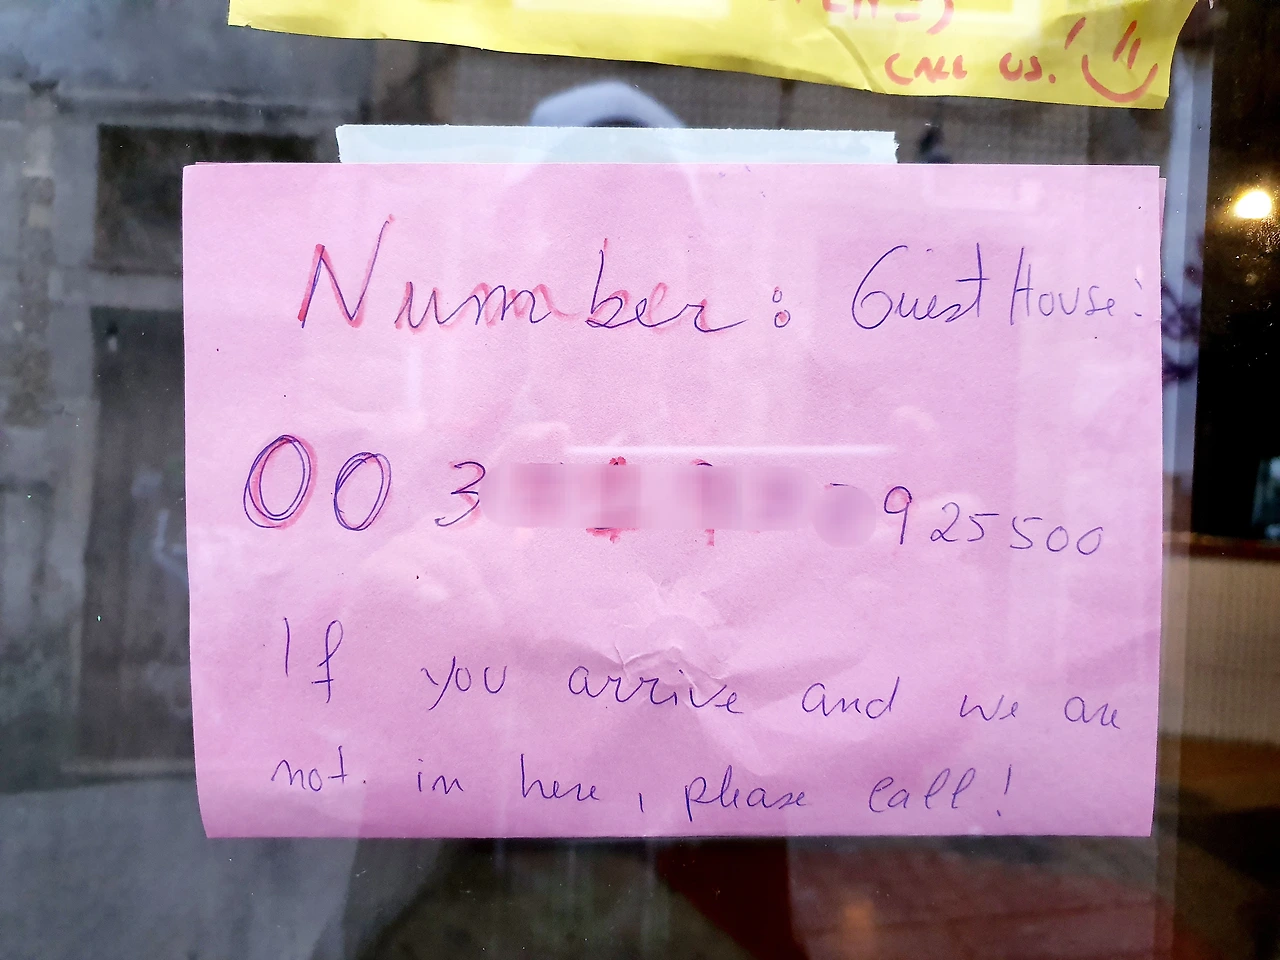 CALL US!
Number: Guest House:
00 3 925500
If you arrive and we are
not. in here, please call!